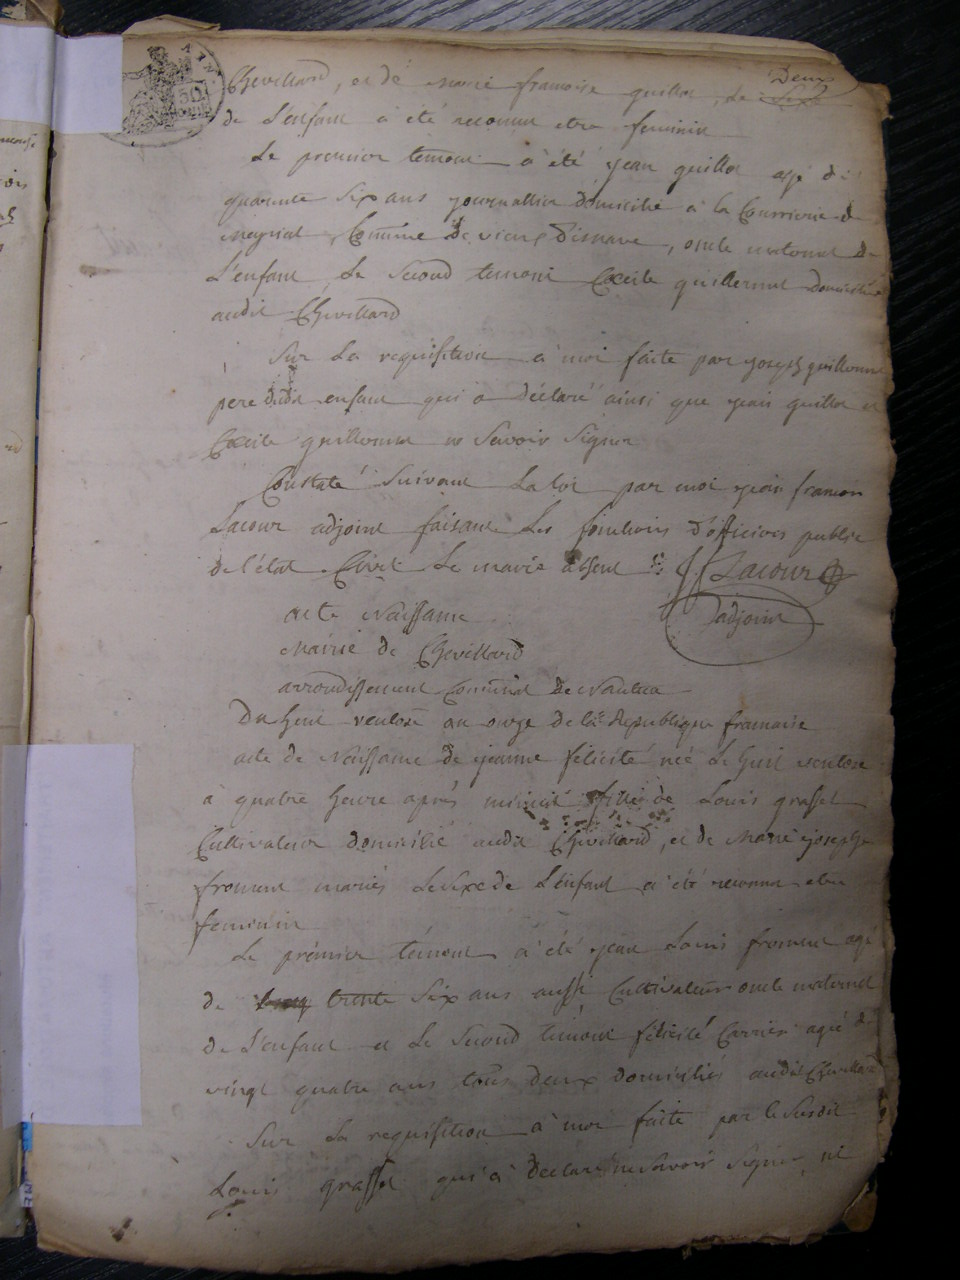 Deux
Chevillard, et de marie francoise guillot, le Sexe
de L'enfant a été reconnu etre feminin
Le premier temoin a été jean guillot agé de
quarante Six ans journallier domicilié à la
meyriat, Commune de vieux Disnave, oncle maternel de
L'enfant, Le Second temoin Cecile guillermet domiciliée
audit Chevillard
Sur La requisition a moi faite par joseph guillermet
père dudit enfant qui a déclaré ainsi que jean guillot et
Cecile guillermet ne Savoir Signer
Constaté Suivant La loi par moi jean francois
Lacour adjoint faisant Les fonctions d'officier public
de l'état Civil Le maire absent J. f. Lacour
adjoint
acte Naissance
Mairie de Chevillard
arrondissement Communal de Nantua
Du huit ventose an onze de la Republique francaise
acte de Naissance de jeanne félicité née le huit ventose
à quatre heure après midi fille de Louis grasset
Cultivateur domicilié audit Chevillard, et de Marie josephe
froment mariés Le Sexe de L'enfant a été reconnu etre
feminin
Le prémier témoin a été jean Louis froment agé
de trente Six ans aussi Cultivateur oncle maternel
de L'enfant et Le Second témoin félicité Carrier agée de
vingt quatre ans tous deux domiciliés audit Chevillard
Sur La requisition à moi faite par le Susdit
Louis grasset qui a déclaré ne Savoir Signer, ni